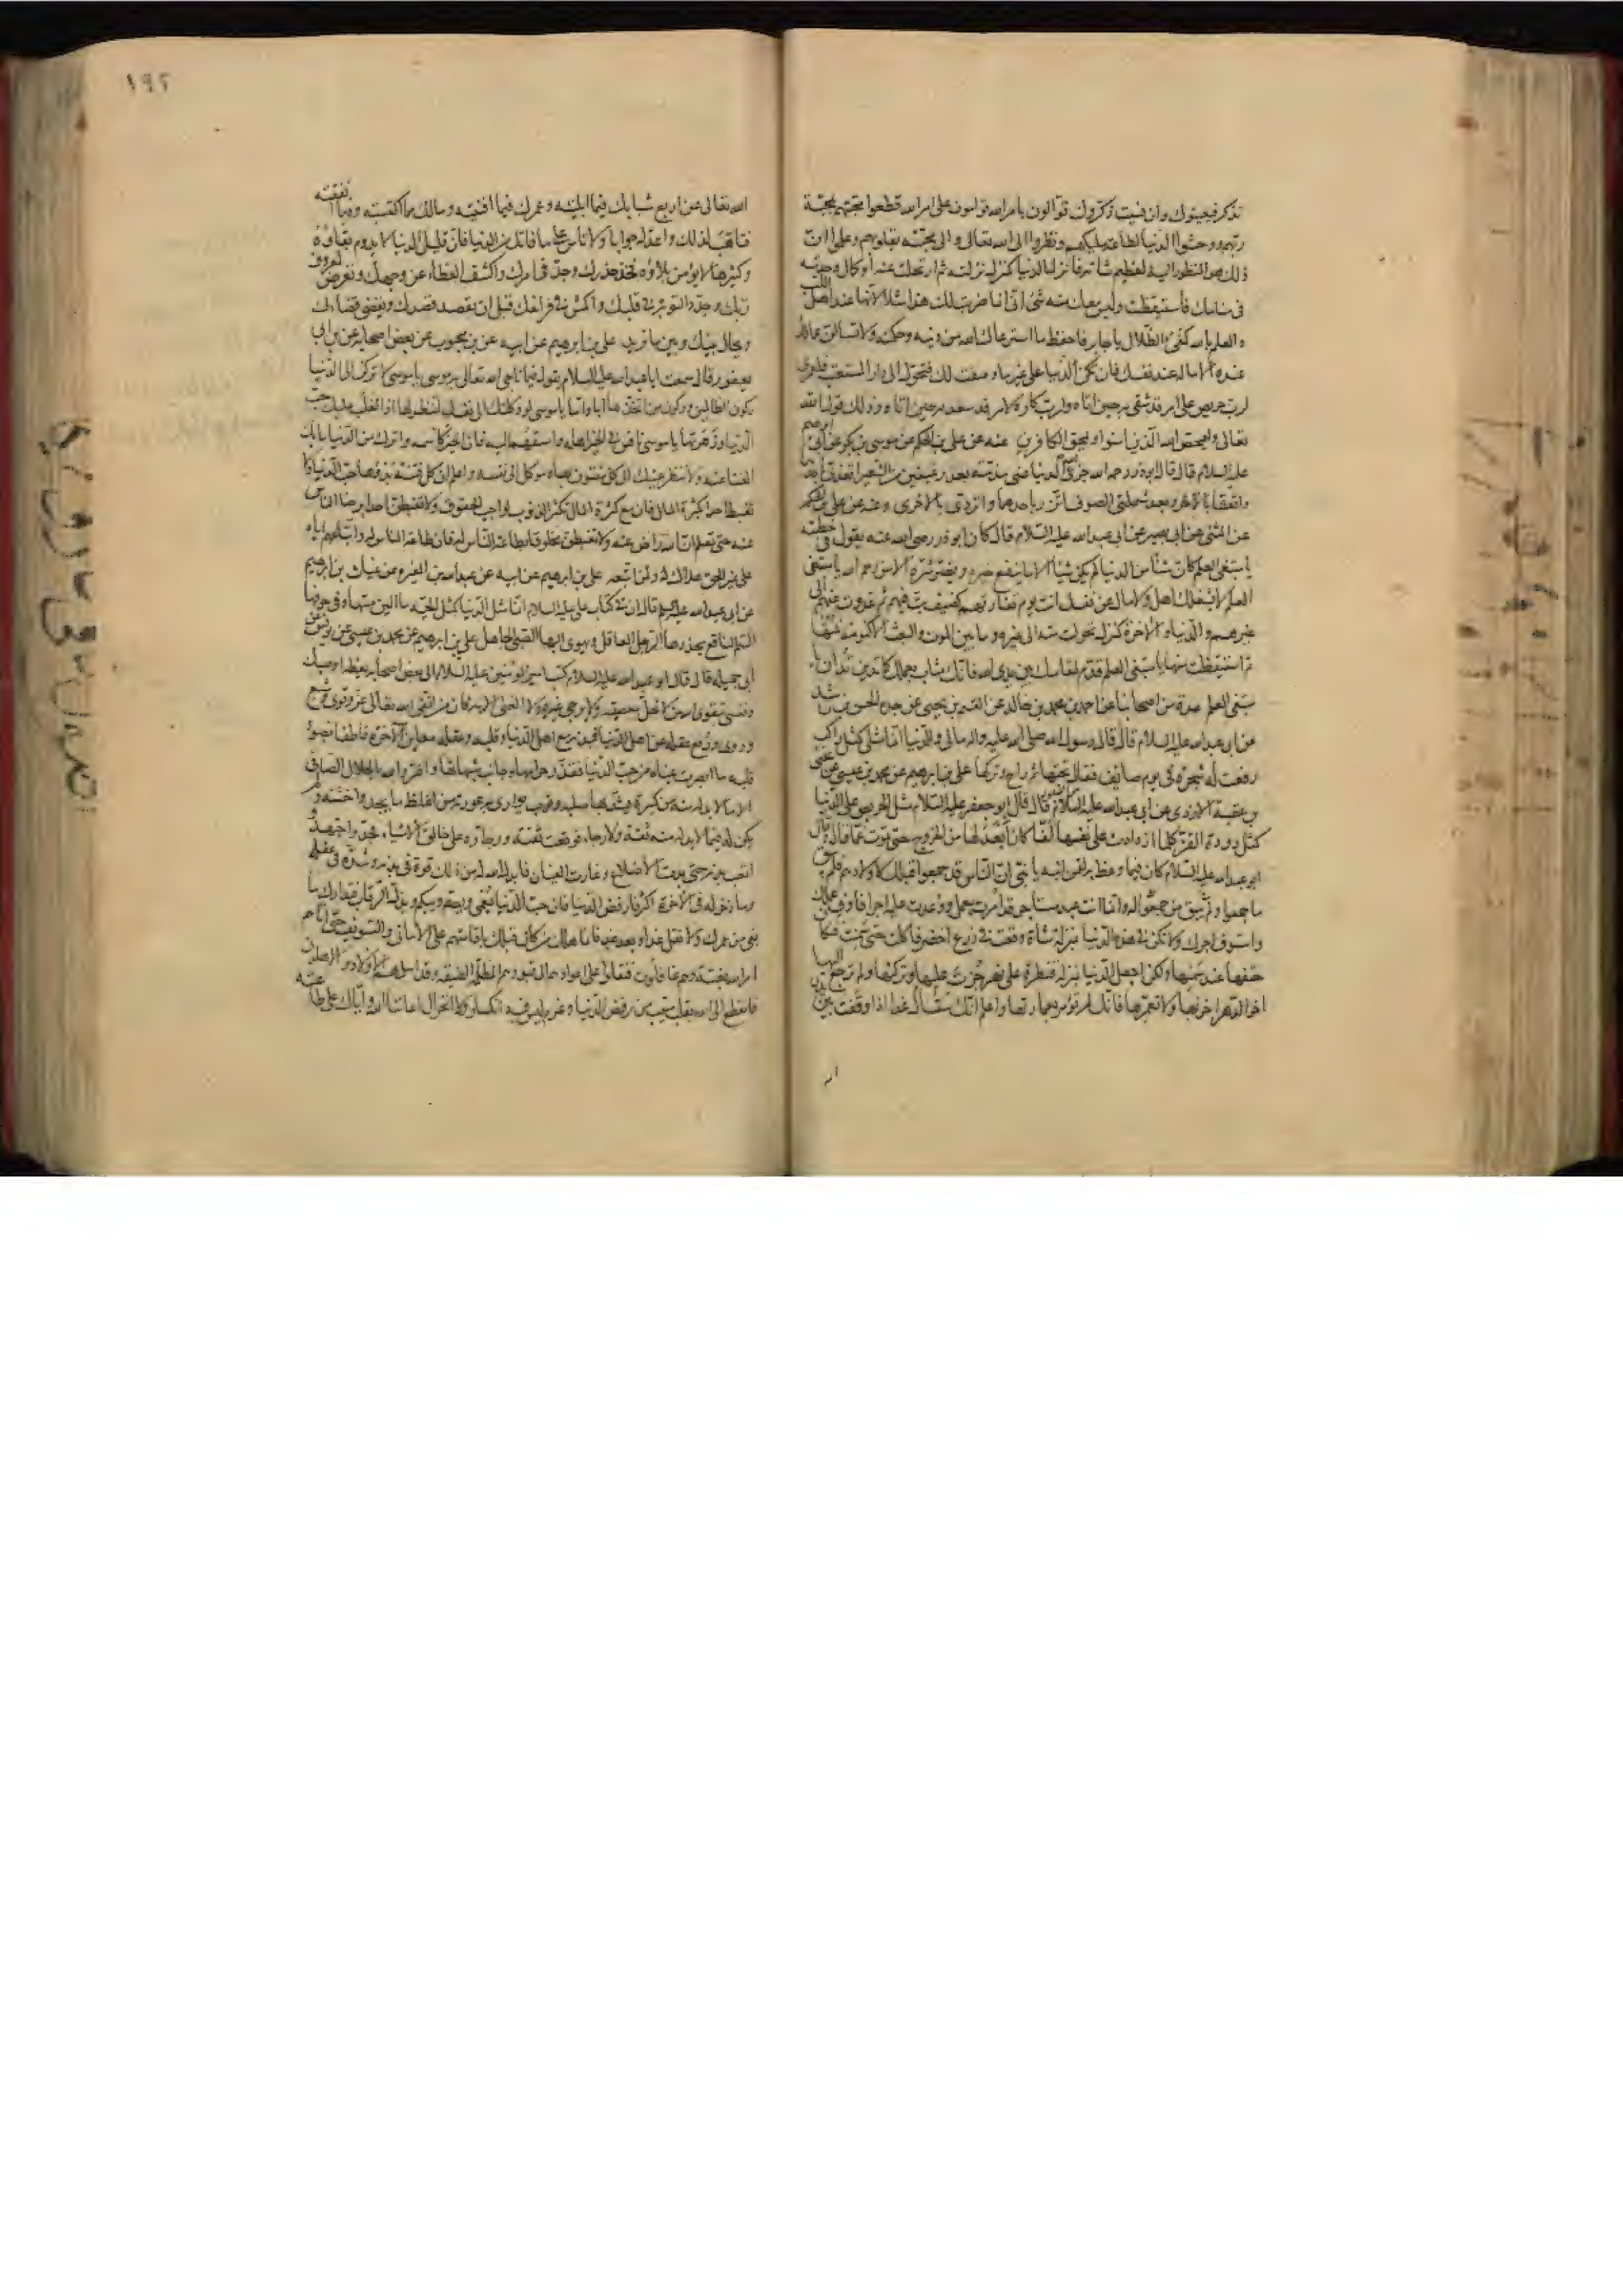 تذكر فيعينوك وان نسيت ذكروك قوالون بامر الله قوامون على امر الله قطعوا محبتهم بمحبة
ربهم ووحشوا الدنيا لطاعة مليكهم ونظروا الى الله تعالى والى محبته بقلوبهم وعلموا ان
ذلك هو المنظور اليه لعظيم شانه فانزل الدنيا كمنزل نزلته ثم ارتحلت عنه او كمال وجدته
فى منامك فاستيقظت وليس معك منه شئ انى انما ضربت لك هذا مثلا لانها عند اهل اللب
والعلم بالله كفئ الظلال يا جابر فاحفظ ما استرعاك الله من دينه وحكمته ولا تسالن عما لك
عنده الا ما له عند نفسك فان تكن الدنيا على غير ما وصفت لك فتحول الى دار المستعتب فلعمرى
لرب حريص على امر قد شقى به حين اتاه ولرب كاره لامر قد سعد به حين اتاه وذلك قول الله
تعالى وليمحص الله الذين امنوا ويمحق الكافرين عنه عن على بن الحكم عن موسى بن بكر عن ابى ابرهيم
عليه السلام قال قال ابوذر رحمه الله جزى الله الدنيا عنى مذمة بعد رغيفين من الشعير اتغدى باحدهما
واتعشى بالاخر وبعد شملتى الصوف اتزر باحدهما واتردى بالاخرى وعنه عن على بن الحكم
عن المثنى عن ابى بصير عن ابى عبد الله عليه السلام قال كان ابوذر رضى الله عنه يقول فى خطبته
يا مبتغى العلم كان شيئا من الدنيا لم يكن شيئا الا ما ينفع خيره ويضر شره الا من رحم الله يا مبتغى
العلم لا يشغلك اهل ولا مال عن نفسك انت يوم تفارقهم كضيف بت فيهم ثم غدوت عنهم الى
غيرهم والدنيا والاخرة كمنزل تحولت منه الى غيره وما بين الموت والبعث الا كنومة نمتها
ثم استيقظت منها يا مبتغى العلم قدم لمقامك بين يدى الله فانك مثاب بعملك كما تدين تدان يا
مبتغى العلم عدة من اصحابنا عن احمد بن محمد بن خالد عن القسم بن يحيى عن جده الحسن بن راشد
عن ابى عبد الله عليه السلام قال قال رسول الله صلى الله عليه واله مالى وللدنيا انما مثلى كمثل راكب
رفعت له شجرة فى يوم صايف فقال تحتها ثم راح وتركها على بن ابرهيم عن محمد بن عيسى عن يحيى
بن عقبة الازدى عن ابى عبد الله عليه السلام قال قال ابو جعفر عليه السلام مثل الحريص على الدنيا
كمثل دودة القز كلما ازدادت على نفسها لفا كان ابعد لها من الخروج حتى تموت غما قال وقال
ابو عبد الله عليه السلام كان فيما وعظ به لقمن ابنه يا بنى ان الناس قد جمعوا قبلك لاولادهم فلم يبق
ما جمعوا ولم يبق من جمعوا له وانما انت عبد مستاجر قد امرت بعمل ووعدت عليه اجرا فاوف عملك
واستوف اجرك ولا تكن فى هذه الدنيا بمنزلة شاة وقعت فى زرع اخضر فاكلت حتى سمنت فكان
حتفها عند سمنها ولكن اجعل الدنيا بمنزلة قنطرة على نهر جزت عليها وتركتها ولم ترجع اليها
اخر الدهر اخربها ولا تعمرها فانك لم تؤمر بعمارتها واعلم انك ستسال غدا اذا وقفت بين يدى
١٩٢
الله تعالى عن اربع شبابك فيما ابليته وعمرك فيما افنيته ومالك مما اكتسبته وفيما انفقته
فتاهب لذلك واعد له جوابا ولا تاس على ما فاتك من الدنيا فان قليل الدنيا لا يدوم بقاؤه
وكثيرها لا يؤمن بلاؤه فخذ حذرك وجد فى امرك واكشف الغطاء عن وجهك وتعرض لمعروف
ربك وجدد التوبة فى قلبك واكمش فى فراغك قبل ان يقصد قصدك ويقضى قضاءك
ويحال بينك وبين ما تريد على بن ابرهيم عن ابيه عن بن محبوب عن بعض اصحابه عن بن ابى
يعفور قال سمعت ابا عبد الله عليه السلام يقول فيما ناجى الله تعالى به موسى يا موسى لا تركن الى الدنيا
ركون الظالمين وركون من اتخذها ابا واما يا موسى لو وكلتك الى نفسك لتنظر لها اذا لغلب عليك حب
الدنيا وزهرتها يا موسى نافس فى الخير اهله واستبقهم اليه فان الخير كاسمه واترك من الدنيا ما بك
الغنا عنه ولا تنظر عينك الى كل مفتون بها وموكل الى نفسه واعلم ان كل فتنة بدؤها حب الدنيا ولا
تغبط احدا بكثرة المال فان مع كثرة المال تكثر الذنوب لواجب الحقوق ولا تغبطن احدا برضا الناس
عنه حتى تعلم ان الله راض عنه ولا تغبطن مخلوقا بطاعة الناس له فان طاعة الناس له واتباعهم اياه
على غير الحق هلاك له ولمن اتبعه على بن ابرهيم عن ابيه عن عبد الله بن المغيرة عن غياث بن ابرهيم
عن ابى عبد الله عليه السلام قال ان فى كتاب على عليه السلام انما مثل الدنيا كمثل الحية ما الين مسها وفى جوفها
السم الناقع يحذرها الرجل العاقل ويهوى اليها الصبى الجاهل على بن ابرهيم عن محمد بن عيسى عن يونس عن
ابى جميلة قال قال ابو عبد الله عليه السلام كتب امير المؤمنين عليه السلام الى بعض اصحابه يعظه اوصيك
ونفسى بتقوى الله من لا تحل معصيته ولا يرجى غيره ولا الغنى الا به فان من اتقى الله تعالى عز وقوى وشبع
وروى ورفع عقله عن اهل الدنيا فبدنه مع اهل الدنيا وقلبه وعقله معاين الاخرة فاطفا بضوء
قلبه ما ابصرت عيناه من حب الدنيا فقذر حرامها وجانب شبهاتها واضر والله بالحلال الصافى
الا ما لا بد له منه من كسرة يشد بها صلبه وثوب يوارى به عورته من اغلظ ما يجد واخشنه ولم
يكن له فيما لا بد له منه ثقة ولا رجاء فوقعت ثقته ورجاؤه على خالق الاشياء فجد واجتهد و
اتعب بدنه حتى بدت الاضلاع وغارت العينان فابدل الله له من ذلك قوة فى بدنه وشدة فى عقله
وما ذخر له فى الاخرة اكثر فارفض الدنيا فان حب الدنيا يعمى ويصم ويبكم ويذل الرقاب فتدارك ما
بقى من عمرك ولا تقل غدا وبعد غد فانما هلك من كان قبلك باقامتهم على الامانى والتسويف حتى اتاهم
امر الله بغتة وهم غافلون فنقلوا على اعوادهم الى قبورهم المظلمة الضيقة وقد اسلمهم الاولاد والاهلون
فانقطع الى الله بقلب منيب من رفض الدنيا وعزم ليس فيه انكسار ولا انخزال اعاننا الله واياك على طاعته